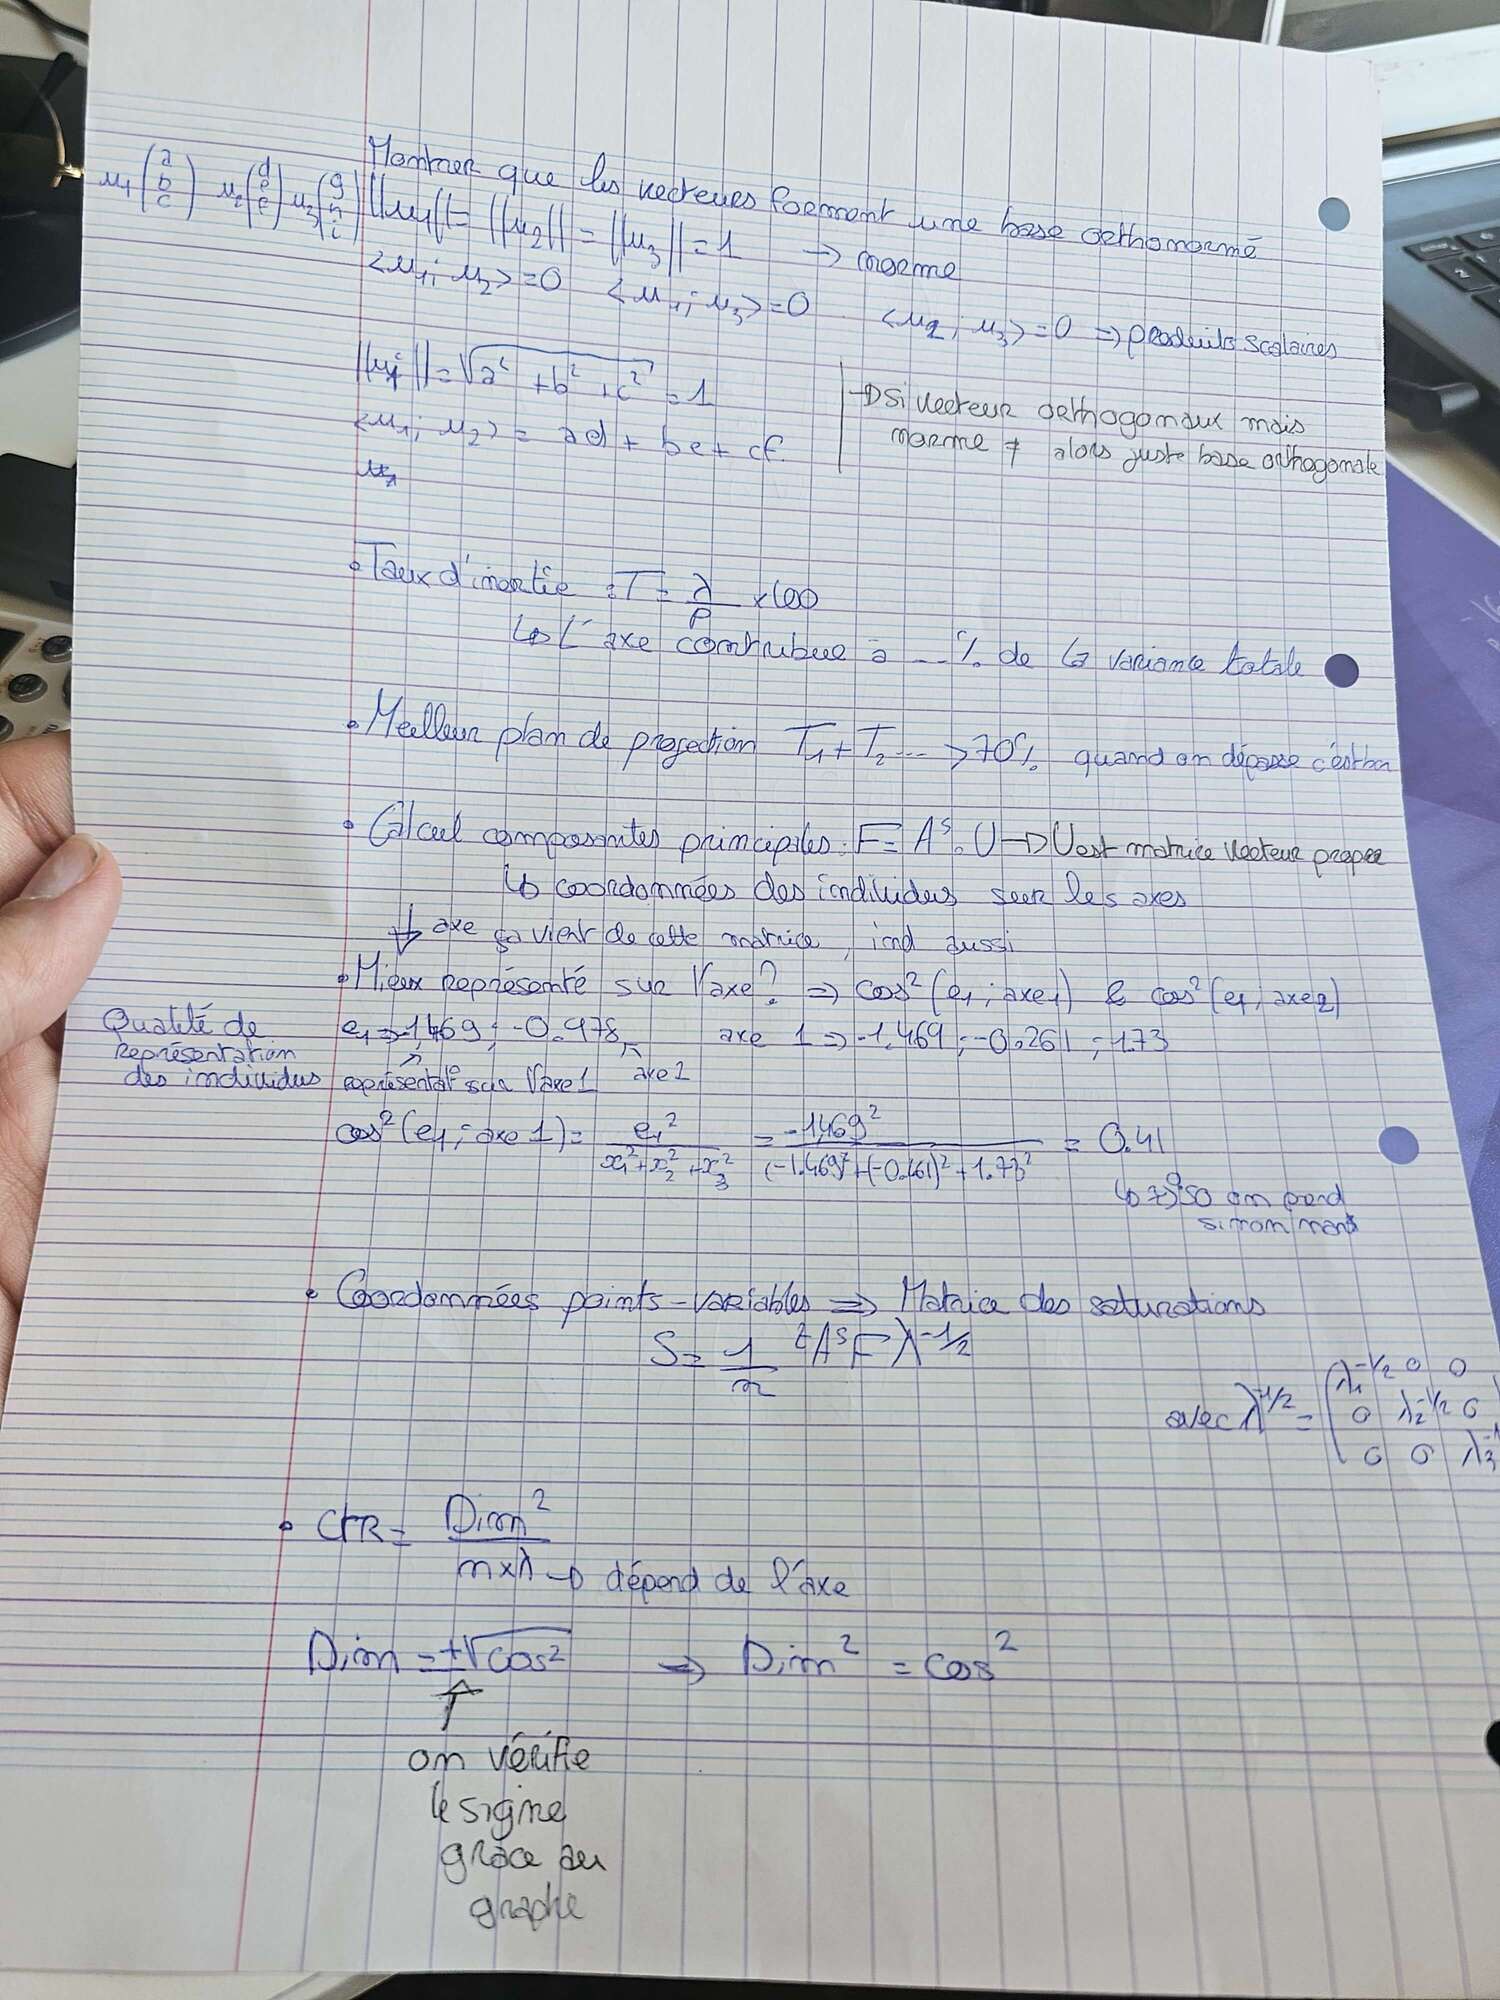 Montrer que les vecteurs forment une base orthonormé
μ1 (a b c) μ2 (d e f) μ3 (g h i) ||μ1|| = ||μ2|| = ||μ3|| = 1 → norme
<μ1; μ2> = 0 <μ1; μ3> = 0 <μ2; μ3> = 0 => produits scalaires
||μ1|| = √(a² + b² + c²) = 1
→ Si vecteur orthogonaux mais
<μ1; μ2> = ad + be + cf
norme ≠ alors juste base orthogonale
• Taux d'inertie : T = λ/P × 100
↳ L'axe contribue à ...% de la variance totale
• Meilleur plan de projection T1 + T2 ... > 70% quand on dépasse c'est bon
• Calcul composantes principales : F = Aˢ . U → U est matrice vecteur propre
↳ coordonnées des individus sur les axes
↓ axe ça vient de cette matrice, ind aussi
• Mieux représenté sur l'axe? => cos² (e1 ; axe1) & cos² (e1 ; axe2)
Qualité de représentation des individus
e1 => -1,469 ; -0.978 axe 1 => -1.469 ; -0.261 ; 1.73
représentat° sur l'axe 1 axe 2
cos² (e1 ; axe 1) = e1² / (x1² + x2² + x3²) = -1,469² / ((-1.469)² + (-0.261)² + 1.73²) = 0.41
on prend
sinon non
• Coordonnées points-variables => Matrice des saturations
S = 1/n ᵗAˢ F λ^-1/2
avec λ^-1/2 = (λ1^-1/2 0 0
0 λ2^-1/2 0
0 0 λ3^-1
• CTR = Dim² / (n×λ) → dépend de l'axe
Dim = ±√cos² → Dim² = cos²
↑
on vérifie
le signe
grâce au
graphe